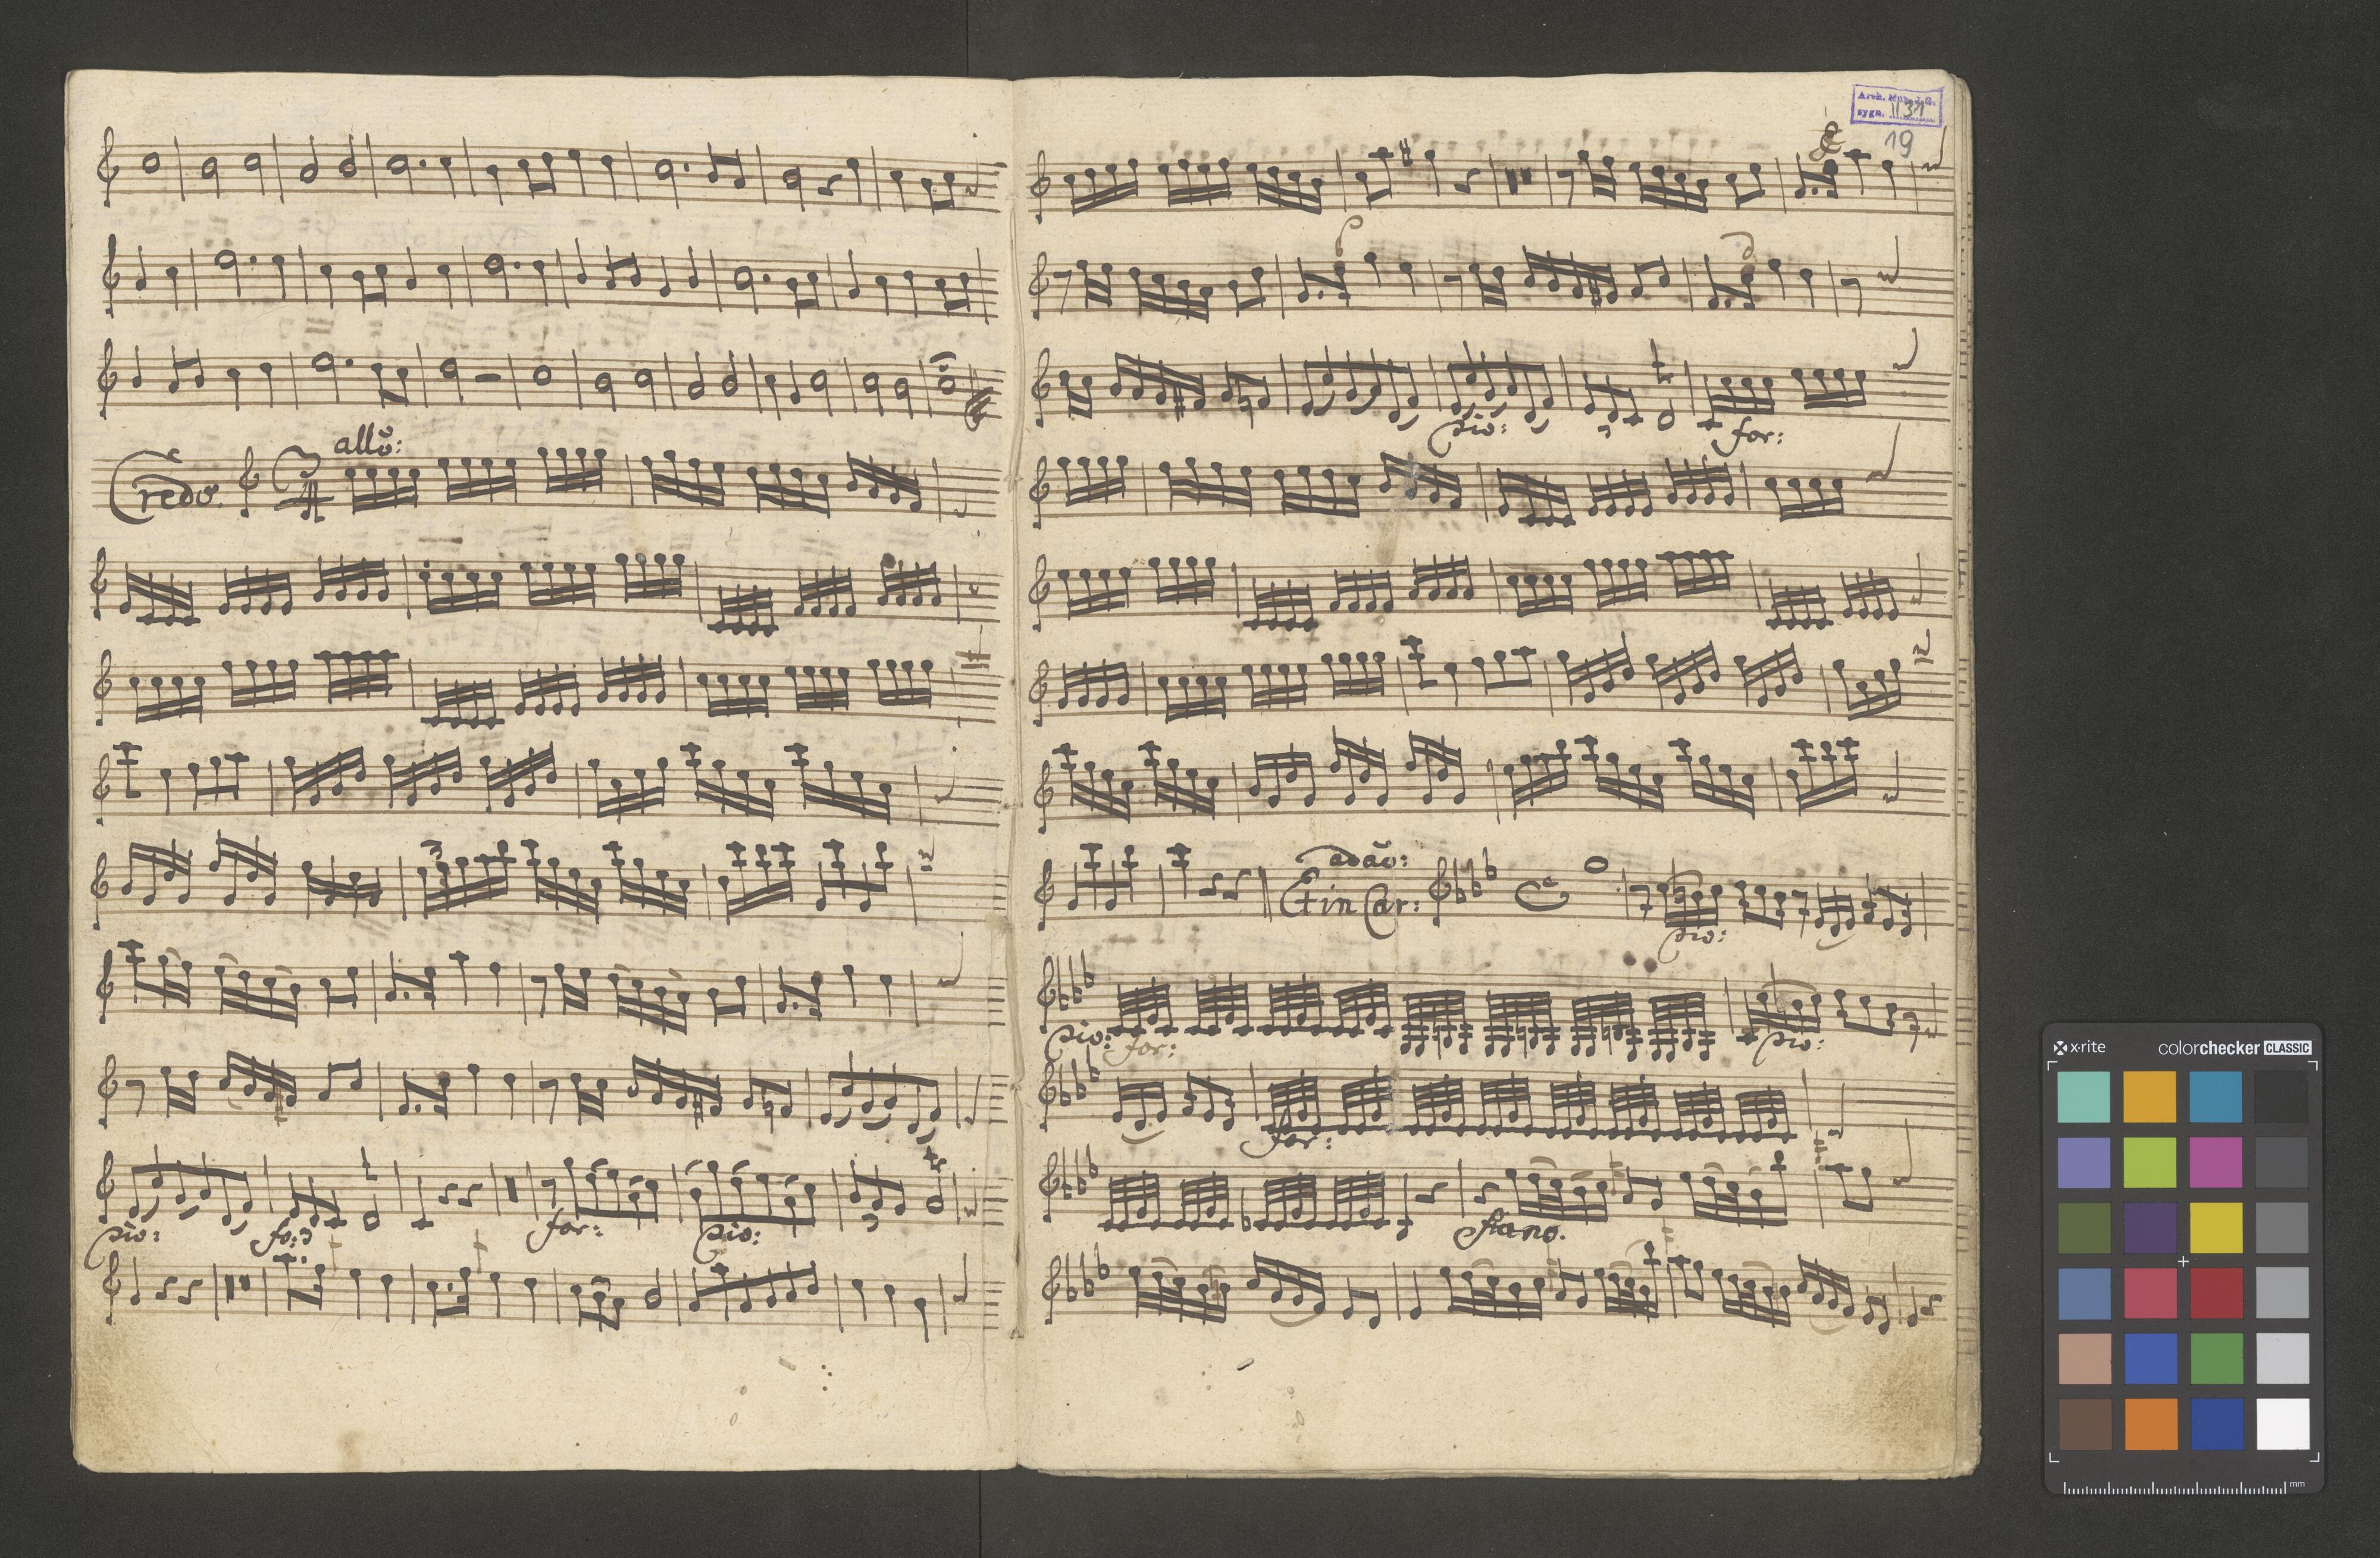 allo:
Credo.
3
4
3
pio:
for:
for:
pio:
tr
Arch. Muz. J. G.
sygn. II 31
19
pio:
for:
adão:
Et in Car:
pio:
pio:
for:
pio:
for:
Piano.
x-rite
colorchecker CLASSIC
mm